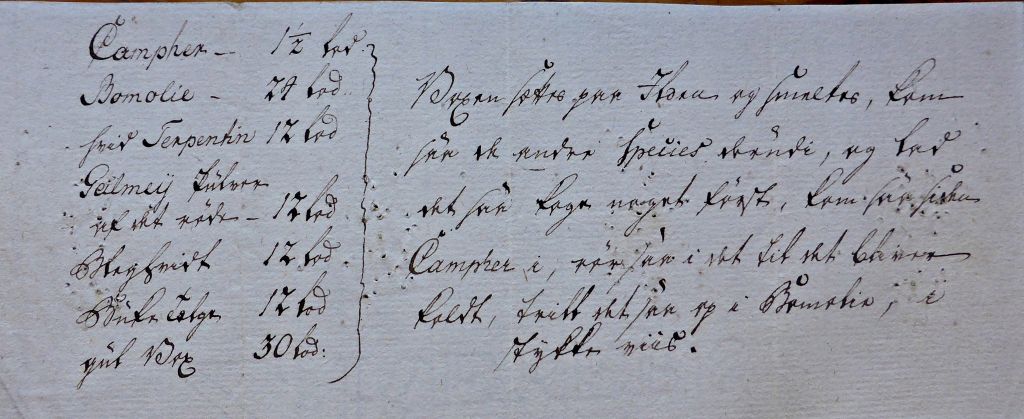 Campher - 1½ lod.
Bomolie - 24 lod.
hvid Terpentin 12 lod
Geilmeij Pülver
af det röde - 12 lod
Bleghvidt 12 lod
Büke Talge 12 lod
gül Vox 30 lod:
Voxen settes paa Ilden og smeltes, kom
saa de andre Species derüdi, og lad
det saa koge noget först, kom saa siden
Campher i, rör saa i det til det bliver
koldt, trill det saa op i Bomolie, i
stykke viis.